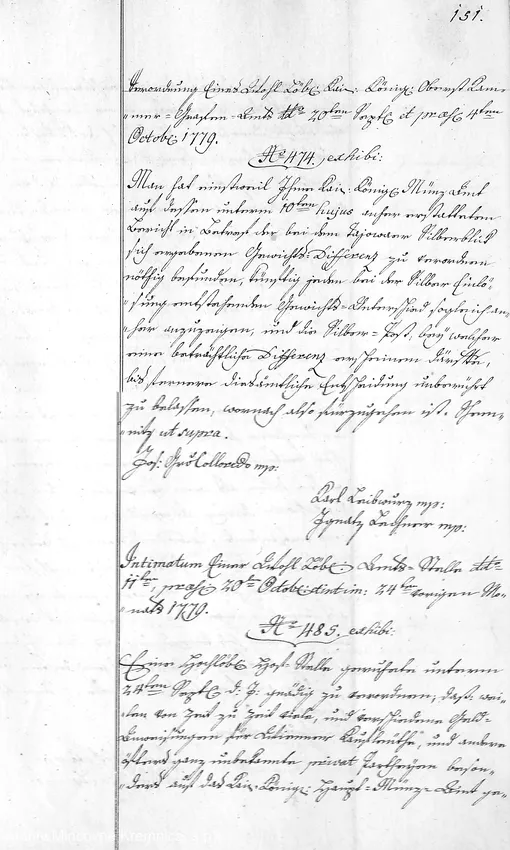 151.
Verordnung Eines Wohl Löbl: Kai: Königl: Oberst Kam-
mer-Grafen-Amts dto 20ten Septb: et præs: 4ten
Octob: 1779.
No 474. exhibi:
Man hat einsweil Ihme Kai: Königl: Münz Amt
auf dessen unterm 10ten hujus anher erstatteten
Bericht in Betref der bei dem Tajowaer Silberblick
sich ergebenen Gewichts-Differenz zu verordnen
nöthig befunden, künftig jeden bei der Silber Einlö-
sung entstehenden Gewichts-Unterschied sogleich an-
her anzuzeigen, und die Silber-Post, bey welcher
eine beträchtliche Differenz erscheinen dürfte,
bis fernere diesämtliche Entscheidung unberührt
zu belassen, wornach also fürzugehen ist. Schem-
nitz ut supra.
Jos: Gr: Colloredo mp:
Karl Leibwurz mp:
Ignatz Lechner mp:
Intimatum Einer Wohl Löbl: Amts-Stelle dto
11ten, præs: 20ten Octob: intim: 24ten vorigen Mo-
nats 1779.
No 485. exhibi:
Eine Hochlöbl: Hof-Stelle geruhete unterm
24ten Septb: d: J: gnädig zu verordnen, daß, wei-
len von Zeit zu Zeit viele, und verschiedene Geld-
Anweisungen für Wienner Kaufleuthe, und andere
öfters ganz unbekante privat Partheyen beson-
ders auf das Kai: Königl: Haupt-Münz-Amt ge-